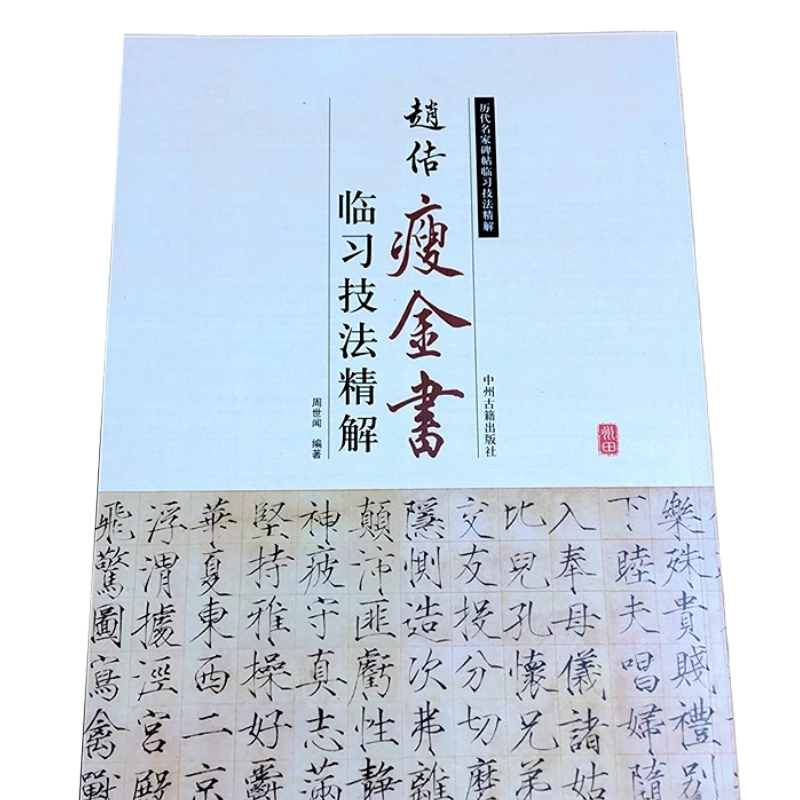 历代名家碑帖临习技法精解
趙佶
瘦金書
临习技法精解
周世闻 编著
中州古籍出版社
樂殊貴賤禮別
下睦夫唱婦隨
入奉母儀諸姑
比兒孔懷兄弟
交友投分切磨
隱惻造次弗離
顛沛匪虧性靜
神疲守真志滿
堅持雅操好爵
華夏東西二京
浮渭據涇宮殿
飛驚圖寫禽獸